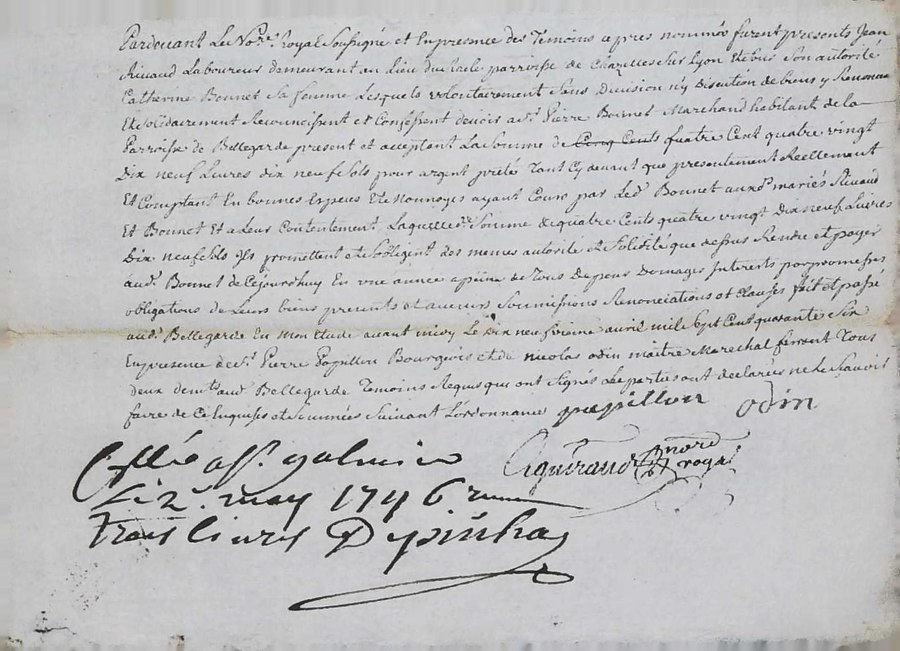 Pardevant Le No.re Royal Soussigné et En presence des Temoins cy apres nommés furent presents Jean
Rivaud Laboureur demeurant au Lieu du parroisse de Chazelles sur Lyon Et de Son autorité
Catherine Bonnet Sa femme Lesquels volontairement Sans Division n'y Discution de biens y Renoncant
Et Solidairement Reconnoissent et Confessent devoir a S.r Pierre Bonnet Marchand habitant de la
Parroisse de Bellegarde present et acceptant La Somme de Cinq Cents quatre Cent quatre vingt
Dix neuf Livres dix neuf Sols pour argent prété Tant Cy devant que presentement Reellement
Et Comptant En bonnes Especes Et Monnoyes ayant Cours par Led. Bonnet auxd. mariés Rivaud
Et Bonnet et a Leur Contentement Laquelle d. Somme de quatre Cents quatre vingt Dix neuf Livres
Dix neuf Sols Ils promettent et s'obligent des memes autorité et Solidité que dessus Rendre et payer
aud. Bonnet de Cejourdhuy En une année a peine de Tous Depens Domages Interets par promesses
obligations de Leurs biens presents et avenir Soumissions Renonciations et Clauses fait et passé
aud. Bellegarde En mon Etude avant midy Le Dix neufvieme avril mile Sept Cent quarante Six
En presence de S.r Pierre Papillon Bourgeois et de nicolas odin maitre Marechal ferrant Tous
deux dem.ts aud. Bellegarde Temoins Requis qui ont Signés Les parties ont declarées ne le Sçavoir
faire de Ce Enquises et Sommées Suivant L'ordonnance papillon odin
not.re
royal
a S.t galmier
Le 2.e may 1746
trois livres